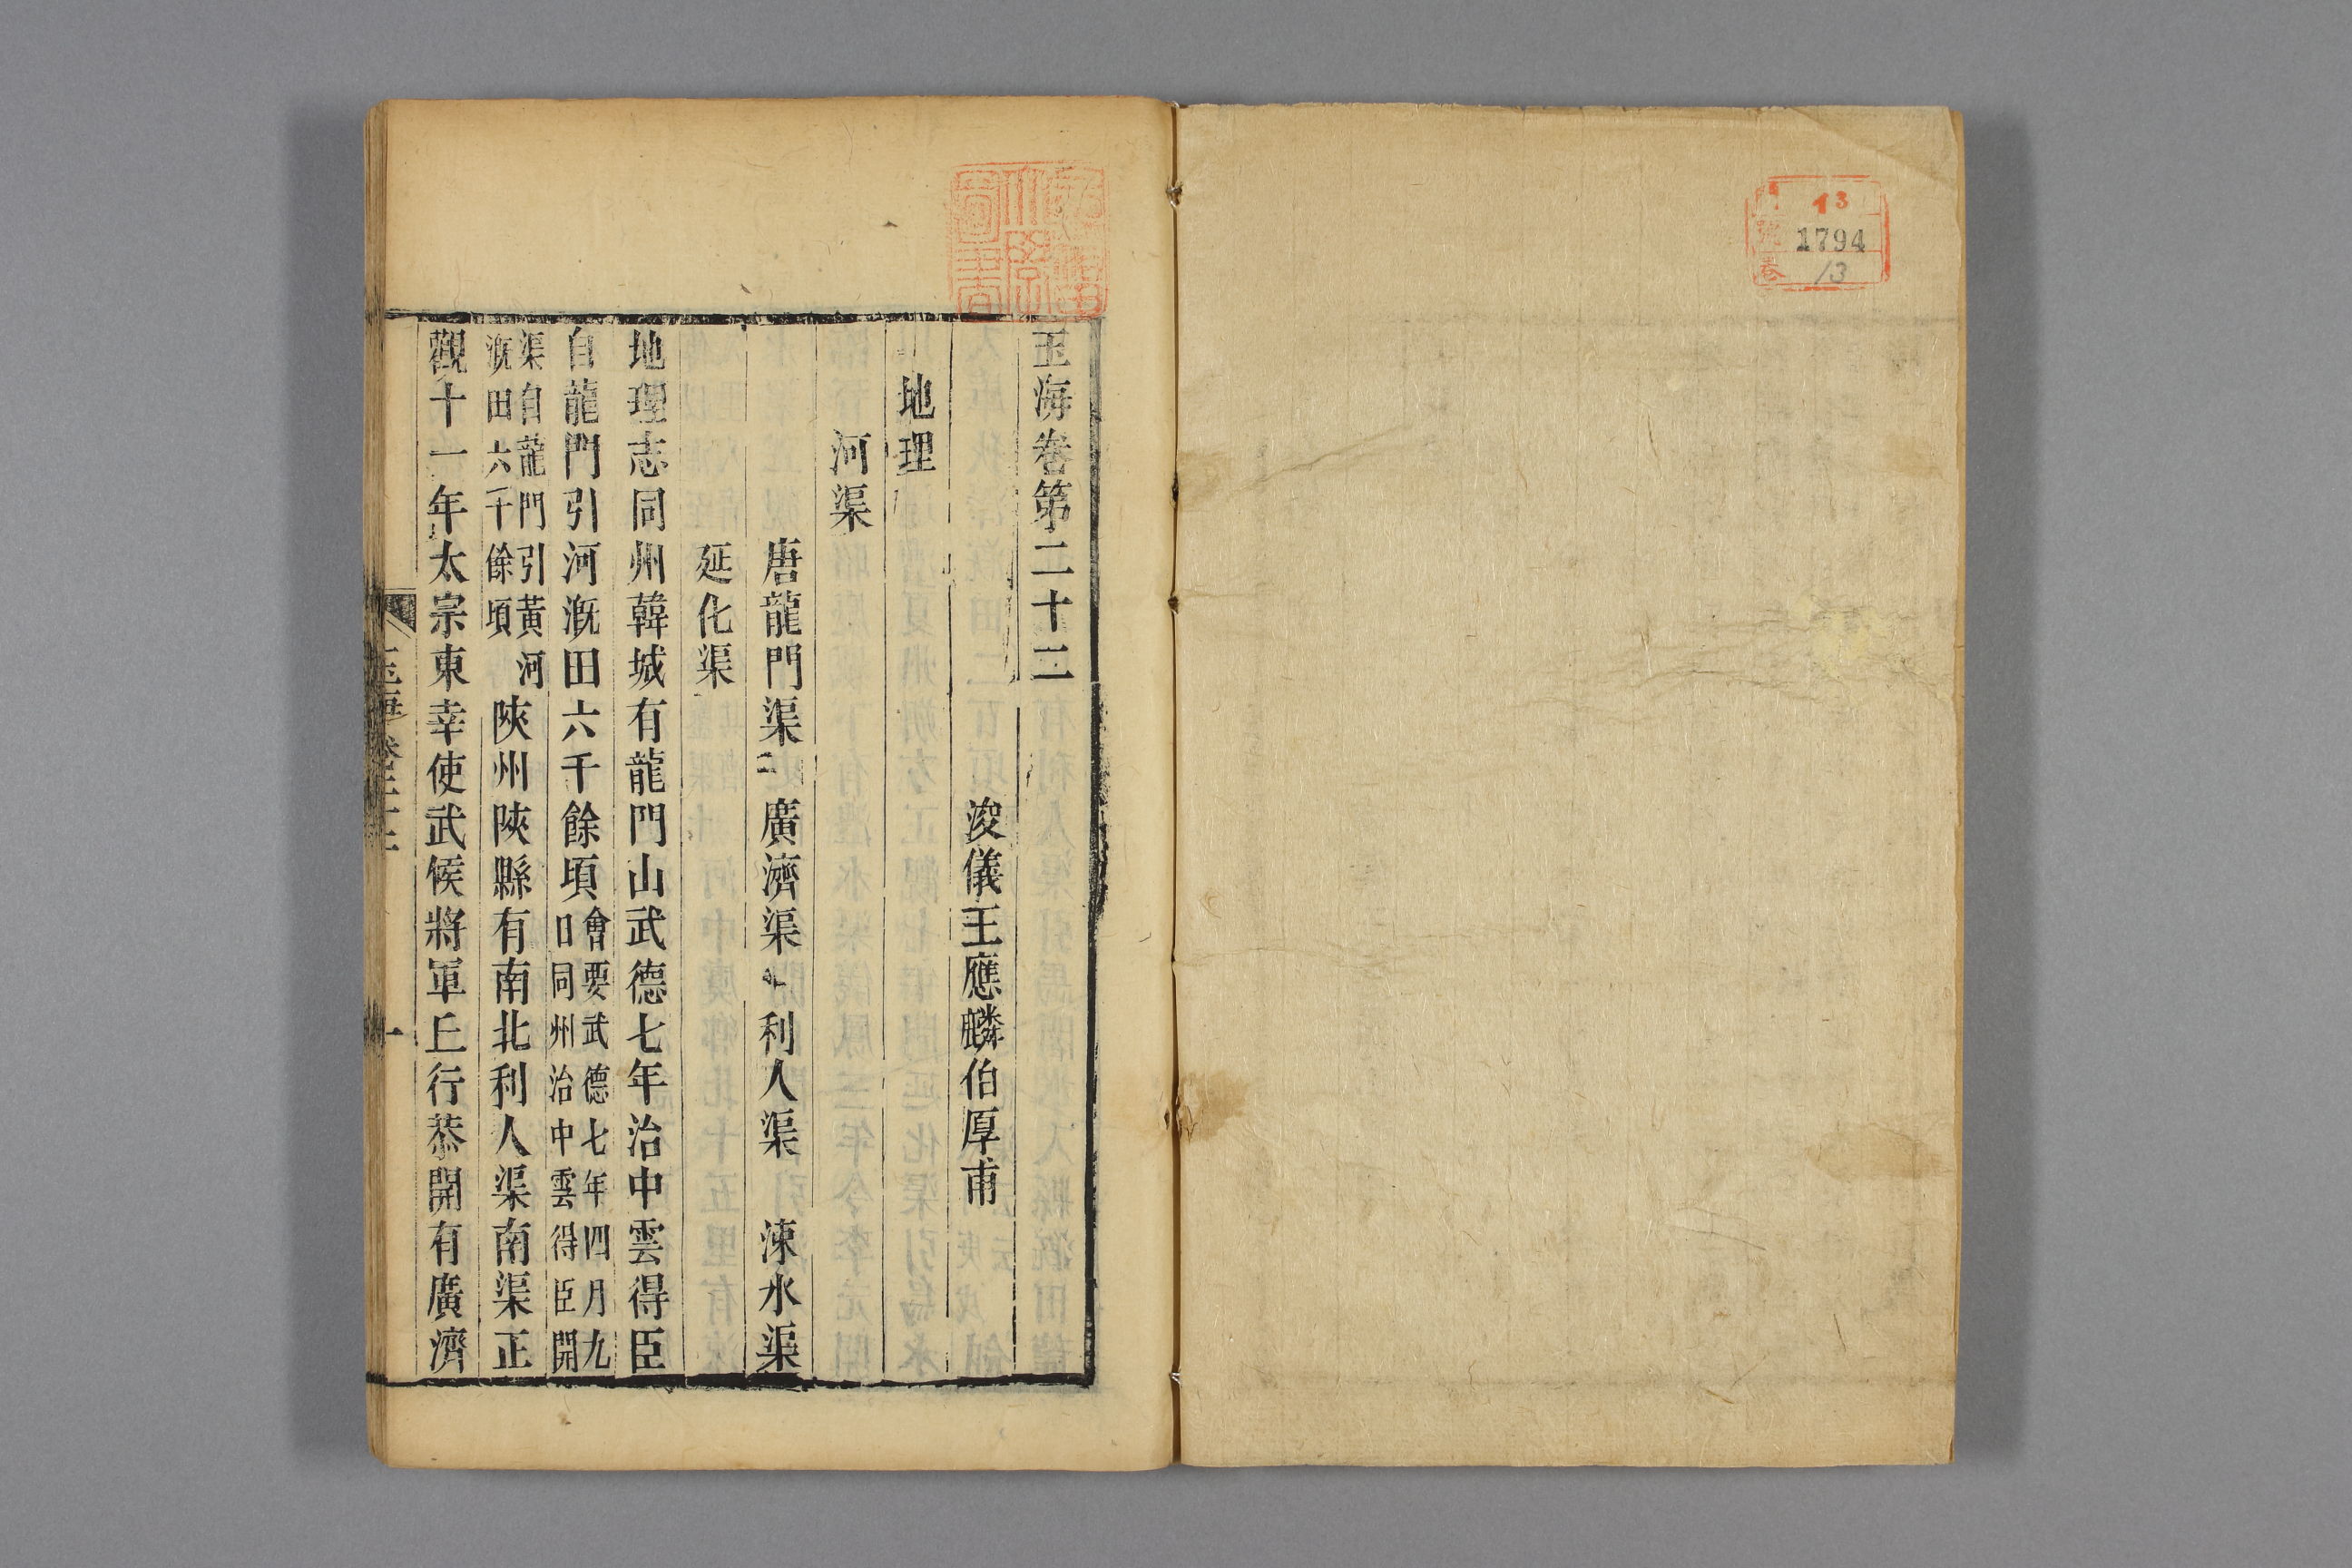 13
1794
13
玉海卷第二十二
浚儀王應麟伯厚甫
地理
河渠
唐龍門渠 廣濟渠 利人渠 涑水渠
延化渠
地理志同州韓城有龍門山武德七年治中雲得臣
自龍門引河溉田六千餘頃會要武德七年四月九日同州治中雲得臣開
渠自龍門引黃河溉田六千餘頃陝州陝縣有南北利人渠南渠正
觀十一年太宗東幸使武候將軍丘行恭開有廣濟
玉海卷二十二
一